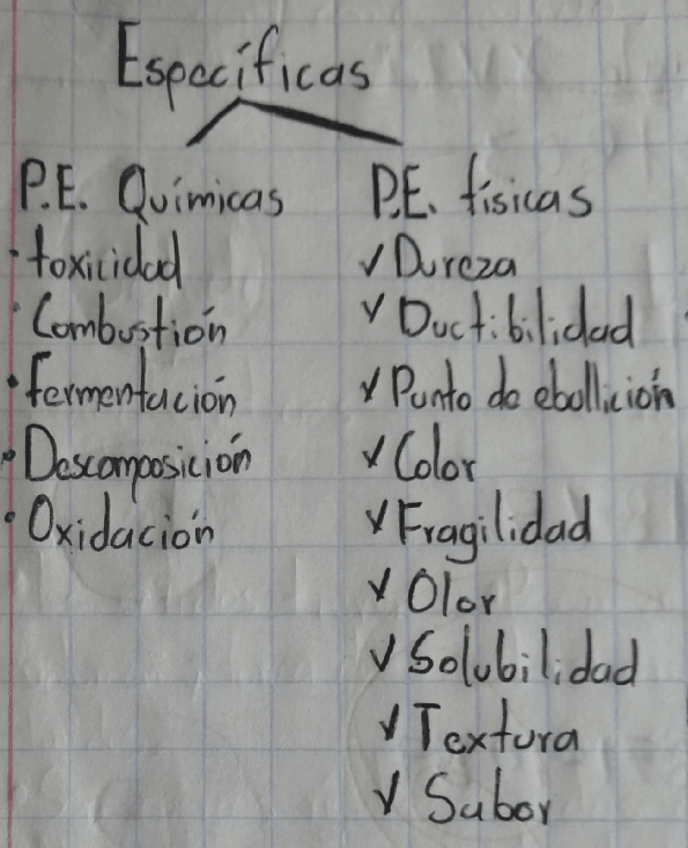 Específicas
P.E. Químicas
• toxicidad
• Combustión
• fermentación
• Descomposición
• Oxidación
P.E. físicas
✓ Dureza
✓ Ductibilidad
✓ Punto de ebullición
✓ Color
✓ Fragilidad
✓ Olor
✓ Solubilidad
✓ Textura
✓ Sabor